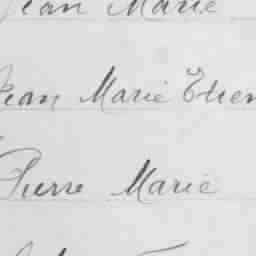 Jean Marie
Jean Marie Etien
Pierre Marie